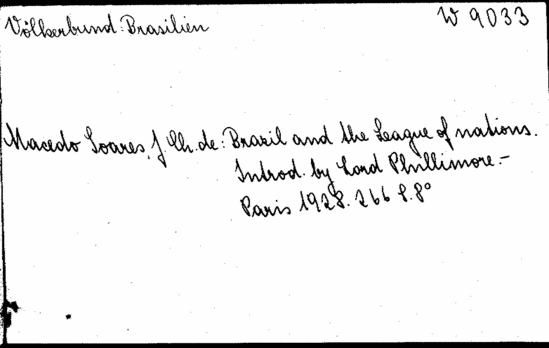 Völkerbund: Brasilien
W 9033
Macedo Soares, J. Ch. de: Brazil and the League of nations.
Introd. by Lord Phillimore.-
Paris 1928. 266 S. 8°